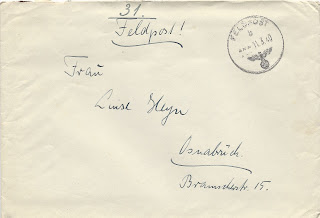 31.
Feldpost!
FELDPOST
b
Frau
Luise Heyn
Osnabrück.
Bramschestr. 15.